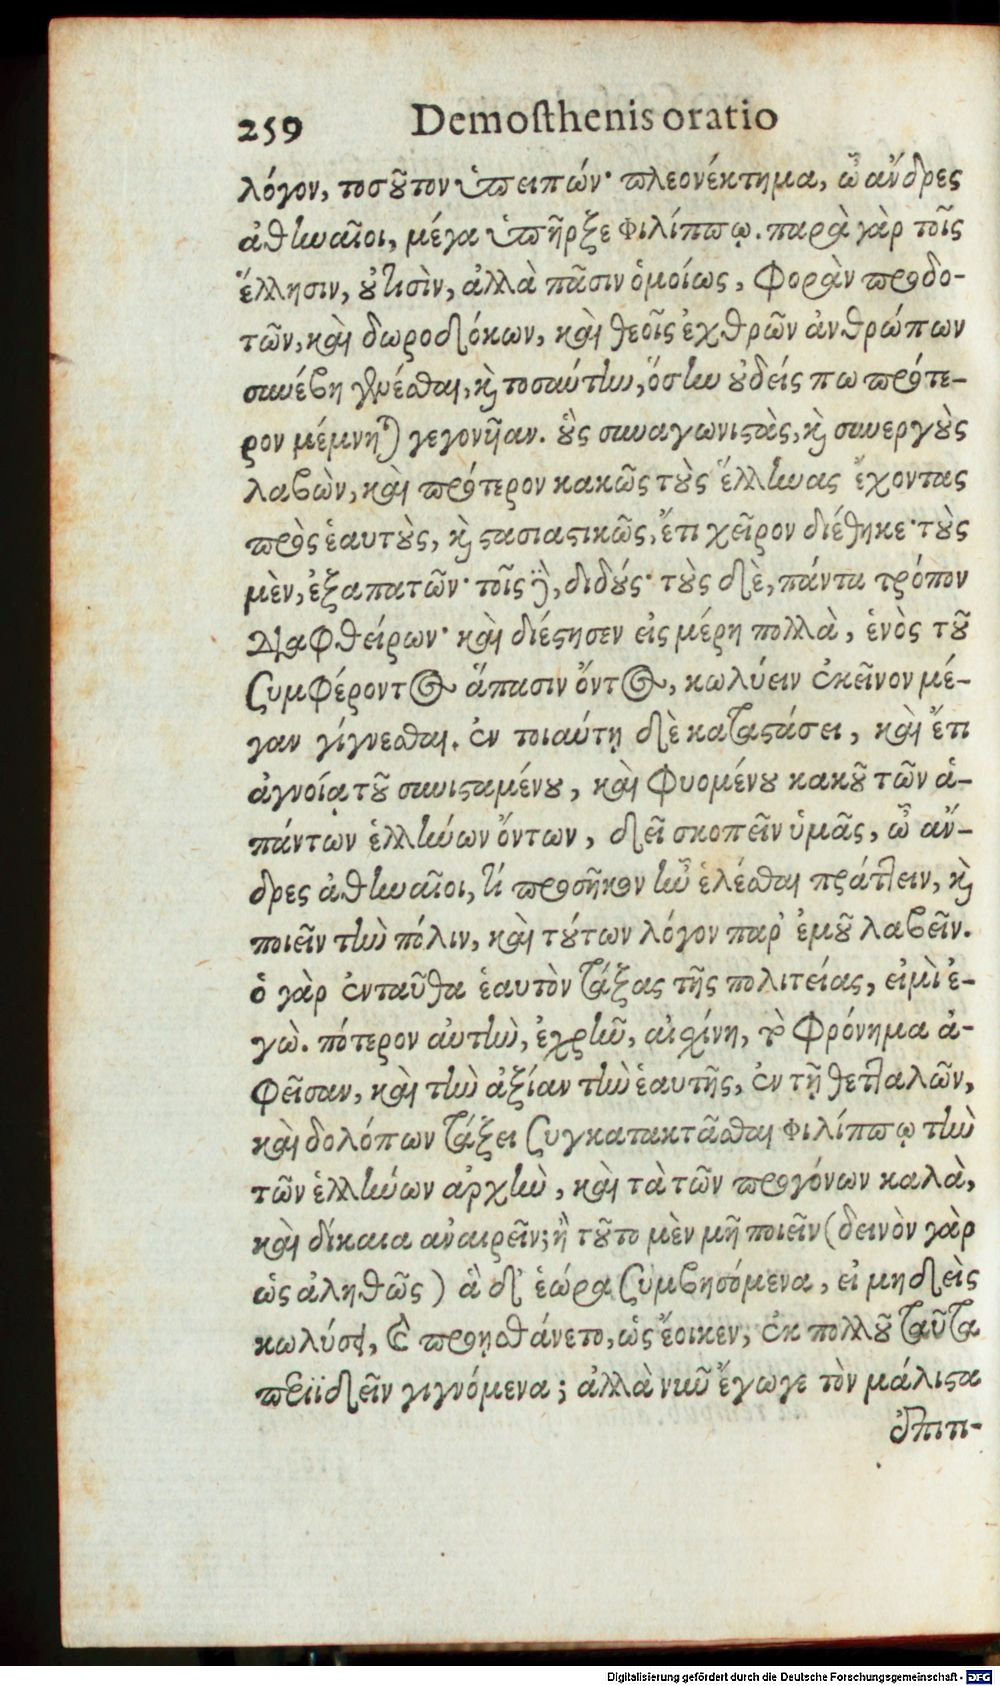 259 Demosthenis oratio
λόγον, τοσοῦτον ὑπειπών· πλεονέκτημα, ὦ ἄνδρες
ἀθηναῖοι, μέγα ὑπῆρξε Φιλίππῳ. παρὰ γὰρ τοῖς
ἕλλησιν, οὐ τισὶν, ἀλλὰ πᾶσιν ὁμοίως, φορὰν προδο-
τῶν, καὶ δωροδόκων, καὶ θεοῖς ἐχθρῶν ἀνθρώπων
συνέβη γενέσθαι, καὶ τοσαύτην, ὅσην οὐδείς πω πρότε-
ρον μέμνηται γεγονῦαν. οὓς συναγωνιστὰς, καὶ συνεργοὺς
λαβὼν, καὶ πρότερον κακῶς τοὺς ἕλληνας ἔχοντας
πρὸς ἑαυτοὺς, καὶ στασιαστικῶς, ἔτι χεῖρον διέθηκε· τοὺς
μὲν, ἐξαπατῶν· τοῖς δὲ, διδούς· τοὺς δὲ, πάντα τρόπον
διαφθείρων· καὶ διέστησεν εἰς μέρη πολλὰ, ἑνὸς τοῦ
συμφέροντος ἅπασιν ὄντος, κωλύειν ἐκεῖνον μέ-
γαν γίγνεσθαι. ἐν τοιαύτῃ δὲ καταστάσει, καὶ ἔτι
ἀγνοίᾳ τοῦ συνισταμένου, καὶ φυομένου κακοῦ τῶν ἁ-
πάντων ἑλλήνων ὄντων, δεῖ σκοπεῖν ὑμᾶς, ὦ ἄν-
δρες ἀθηναῖοι, τί προσῆκον ἦν ἑλέσθαι πράττειν, καὶ
ποιεῖν τὴν πόλιν, καὶ τούτων λόγον παρ' ἐμοῦ λαβεῖν.
ὁ γὰρ ἐνταῦθα ἑαυτὸν τάξας τῆς πολιτείας, εἰμὶ ἐ-
γὼ. πότερον αὐτὴν, ἐχρῆν, αἰσχίνη, τὸ φρόνημα ἀ-
φεῖσαν, καὶ τὴν ἀξίαν τὴν ἑαυτῆς, ἐν τῇ θετταλῶν,
καὶ δολόπων τάξει συγκατακτᾶσθαι Φιλίππῳ τὴν
τῶν ἑλλήνων ἀρχὴν, καὶ τὰ τῶν προγόνων καλὰ,
καὶ δίκαια ἀναιρεῖν; ἢ τοῦτο μὲν μὴ ποιεῖν (δεινὸν γὰρ
ὡς ἀληθῶς) ἃ δ' ἑώρα συμβησόμενα, εἰ μηδεὶς
κωλύσει, καὶ προῃσθάνετο, ὡς ἔοικεν, ἐκ πολλοῦ ταῦτα
περιϊδεῖν γιγνόμενα; ἀλλὰ νῦν ἔγωγε τὸν μάλιστα
ἐπιτι-
Digitalisierung gefördert durch die Deutsche Forschungsgemeinschaft - DFG